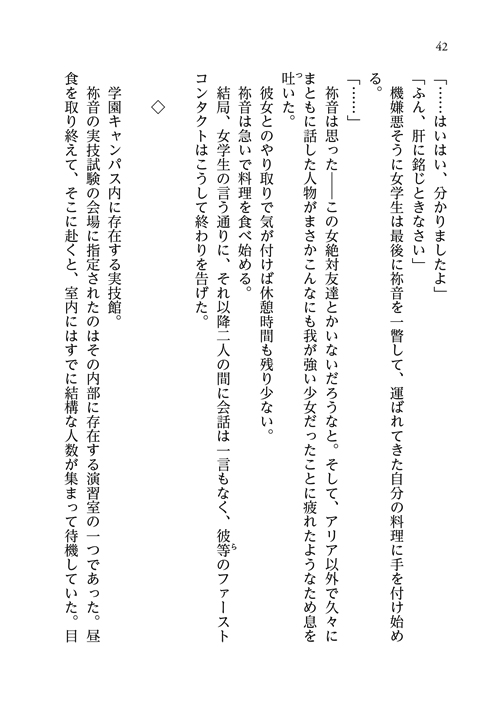 42
「……はいはい、分かりましたよ」
「ふん、肝に銘じときなさい」
　機嫌悪そうに女学生は最後に祢音を一瞥して、運ばれてきた自分の料理に手を付け始め
る。
「……」
　祢音は思った――この女絶対友達とかいないだろうなと。そして、アリア以外で久々に
まともに話した人物がまさかこんなにも我が強い少女だったことに疲れたようなため息を
吐いた。
つ
　彼女とのやり取りで気が付けば休憩時間も残り少ない。
　祢音は急いで料理を食べ始める。
　結局、女学生の言う通りに、それ以降二人の間に会話は一言もなく、彼等のファースト
ら
コンタクトはこうして終わりを告げた。
◇
　学園キャンパス内に存在する実技館。
　祢音の実技試験の会場に指定されたのはその内部に存在する演習室の一つであった。昼
食を取り終えて、そこに赴くと、室内にはすでに結構な人数が集まって待機していた。目